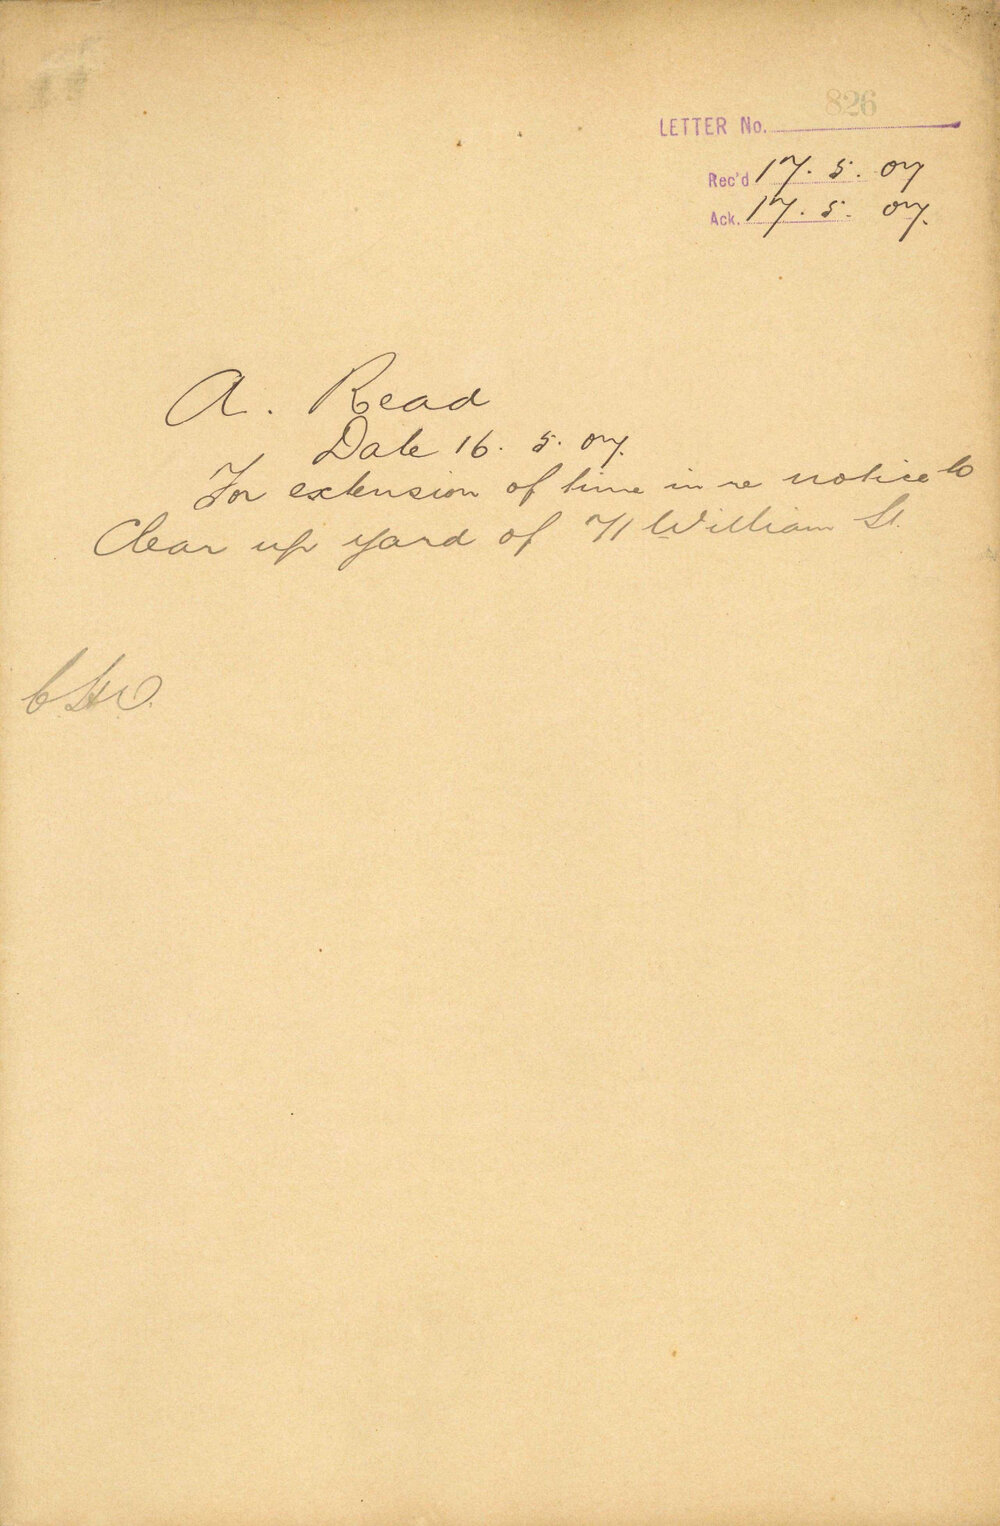 826
LETTER No.
Rec'd 17. 5. 07
Ack. 17. 5. 07.
A. Read
Date 16. 5. 07.
For extension of time in re notice to
Clear up yard of 71 William St.